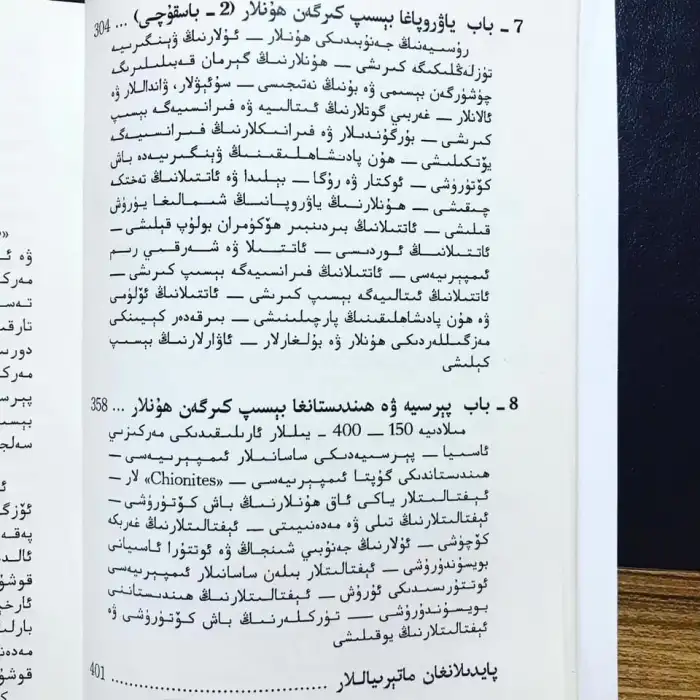 7 ـ باب ياۋروپاغا بېسىپ كىرگەن ھۇنلار (2 ـ باسقۇچى) ... 304
رۇسىيەنىڭ جەنۇبىدىكى ھۇنلار — ئۇلارنىڭ ۋېنگىرىيە
تۈزلەڭلىكىگە كىرىشى — ھۇنلارنىڭ گېرمان قەبىلىلىرىگە
چۈشۈرگەن بېسىمى ۋە بۇنىڭ نەتىجىسى — سۇئېۋلار، ۋانداللار ۋە
ئالانلار — غەربىي گوتلارنىڭ ئىتالىيە ۋە فىرانسىيەگە بېسىپ
كىرىشى — بۇرگۇندىلار ۋە فىرانكلارنىڭ فىرانسىيەگە
يۆتكىلىشى — ھۇن پادىشاھلىقىنىڭ ۋېنگىرىيەدە باش
كۆتۈرۈشى — ئوكتار ۋە رۇگا — بېلىدا ۋە ئاتتىلانىڭ تەختكە
چىقىشى — ھۇنلارنىڭ ياۋروپانىڭ شىمالىغا يۈرۈش
قىلىشى — ئاتتىلانىڭ بىردىنبىر ھۆكۈمران بولۇپ قېلىشى —
ئاتتىلانىڭ ئوردىسى — ئاتتىلا ۋە شەرقىي رىم
ئىمپېرىيەسى — ئاتتىلانىڭ فىرانسىيەگە بېسىپ كىرىشى —
ئاتتىلانىڭ ئىتالىيەگە بېسىپ كىرىشى — ئاتتىلانىڭ ئۆلۈمى
ۋە ھۇن پادىشاھلىقىنىڭ پارچىلىنىشى — بىرقەدەر كېيىنكى
مەزگىللەردىكى ھۇنلار ۋە بۇلغارلار — ئاۋارلارنىڭ بېسىپ
كېلىشى
8 ـ باب پېرسىيە ۋە ھىندىستانغا بېسىپ كىرگەن ھۇنلار ... 358
مىلادىيە 150 — 400 ـ يىللار ئارىلىقىدىكى مەركىزىي
ئاسىيا — پېرسىيەدىكى ساسانىلار ئىمپېرىيەسى —
ھىندىستاندىكى گۇپتا ئىمپېرىيەسى — «Chionites» لار —
ئېفتالىتلار ياكى ئاق ھۇنلارنىڭ باش كۆتۈرۈشى —
ئېفتالىتلارنىڭ تىلى ۋە مەدەنىيىتى — ئېفتالىتلارنىڭ غەربكە
كۆچۈشى — ئۇلارنىڭ جەنۇبىي شىنجاڭ ۋە ئوتتۇرا ئاسىيانى
بويسۇندۇرۇشى — ئېفتالىتلار بىلەن ساسانىلار ئىمپېرىيەسى
ئوتتۇرىسىدىكى ئۇرۇش — ئېفتالىتلارنىڭ ھىندىستاننى
بويسۇندۇرۇشى — تۈركلەرنىڭ باش كۆتۈرۈشى ۋە
ئېفتالىتلارنىڭ يوقىلىشى
پايدىلانغان ماتېرىياللار ........................ 401